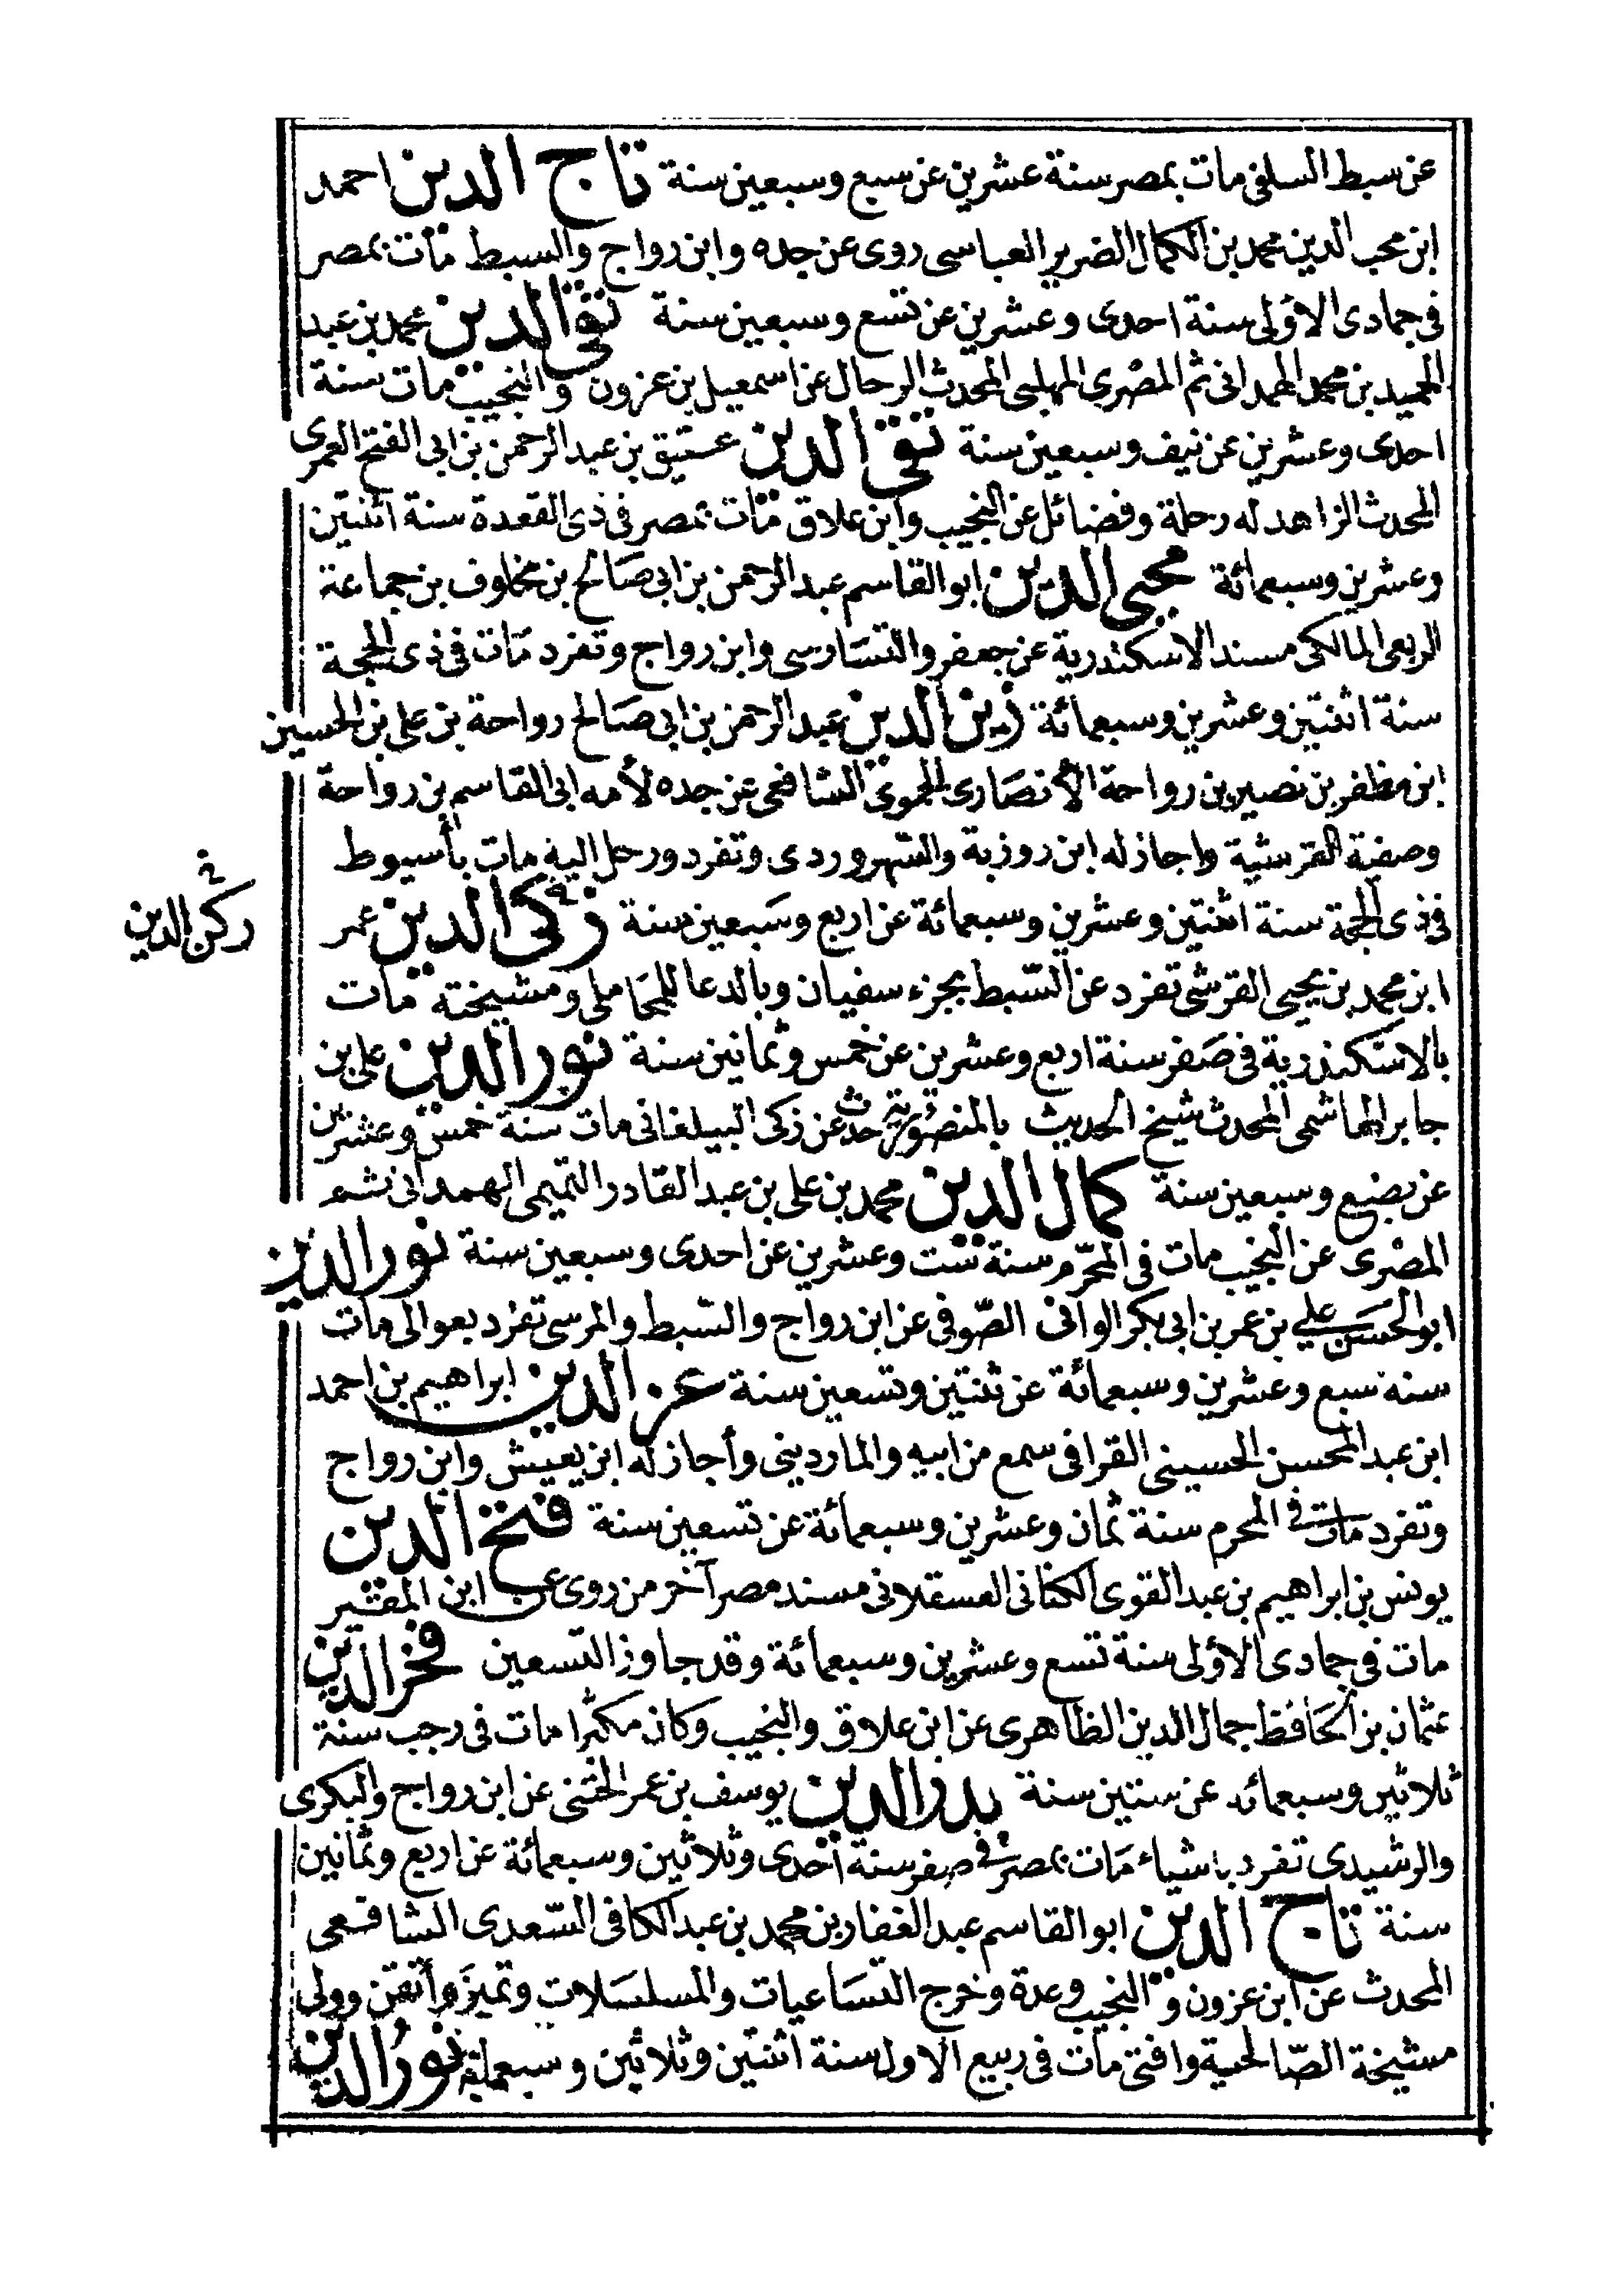 عن سبط السلفى مات بمصر سنة عشرين عن سبع وسبعين سنة تاج الدين احمد
ابن محب الدين محمد بن الكمال الضرير العباسى روى عن جده وابن رواج والسبط مات بمصر
فى جمادى الاولى سنة احدى وعشرين عن تسع وسبعين سنة تقى الدين محمد بن عبد
الحميد بن محمد الهمدانى ثم المصرى المهلبى المحدث الرحال عن اسمعيل بن عزون والنجيب مات سنة
احدى وعشرين عن نيف وسبعين سنة تقى الدين عتيق بن عبد الرحمن بن ابى الفتح العمرى
المحدث الزاهد له رحلة وفضائل عن النجيب وابن علاق مات بمصر فى ذى القعدة سنة اثنتين
وعشرين وسبعمائة محيى الدين ابو القاسم عبد الرحمن بن ابى صالح بن مخلوف بن جماعة
الربعى المالكى مسند الاسكندرية عن جعفر والتسارسى وابن رواج وتفرد مات فى ذى الحجة
سنة اثنتين وعشرين وسبعمائة زين الدين عبد الرحمن بن ابى صالح رواحة بن على بن الحسين
ابن مظفر بن نصير بن رواحة الأنصارى الحموى الشافعى عن جده لأمه ابى القاسم بن رواحة
وصفية القرشية واجاز له ابن روزبة والسّهروردى وتفرد ورحل اليه مات بأسيوط
فى ذى الحجة سنة اثنتين وعشرين وسبعمائة عن اربع وسبعين سنة زكى الدين عمر
ركن الدين
ابن محمد بن يحيى القرشى تفرد عن السّبط بجزء سفيان وبالدعا للمحاملى ومشيخته مات
بالاسكندرية فى صفر سنة اربع وعشرين عن خمس وثمانين سنة نور الدين على بن
جابر الهاشمى المحدث شيخ الحديث بالمنصورية حدث عن زكى البيلغانى مات سنة خمس وعشرين
عن بضع وسبعين سنة كمال الدين محمد بن على بن عبد القادر التميمى الهمدانى ثم
المصرى عن النجيب مات فى المحرّم سنة ست وعشرين عن احدى وسبعين سنة نور الدين
ابو الحسن على بن عمر بن ابى بكر الوانى الصّوفى عن ابن رواج والسّبط والمرسى تفرد بعوالى مات
سنة سبع وعشرين وسبعمائة عن ثنتين وتسعين سنة عز الدين ابراهيم بن احمد
ابن عبد المحسن الحسينى القرافى سمع من ابيه والماردينى وأجاز له ابن يعيش وابن رواج
وتفرد مات فى المحرم سنة ثمان وعشرين وسبعمائة عن تسعين سنة فتح الدين
يونس بن ابراهيم بن عبد القوى الكنانى العسقلانى مسند مصر آخر من روى عن ابن المقير
مات فى جمادى الاولى سنة تسع وعشرين وسبعمائة وقد جاوز التسعين فخر الدين
عثمان بن الحافظ جمال الدين الظاهرى عن ابن علاق والنجيب وكان مكثرا مات فى رجب سنة
ثلاثين وسبعمائه عن ستين سنة بدر الدين يوسف بن عمر الختنى عن ابن رواج والبكرى
والرشيدى تفرد باشياء مات بمصر فى صفر سنة احدى وثلاثين وسبعمائة عن اربع وثمانين
سنة تاج الدين ابو القاسم عبد الغفار بن محمد بن عبد الكافى السّعدى الشافعى
المحدث عن ابن عزون والنجيب وعدة وخرج التساعيات والمسلسلات وتميّز وأتقن وولى
مشيخة الصّالحية وافتى مات فى ربيع الاول سنة اثنتين وثلاثين وسبعمائة نور الدين